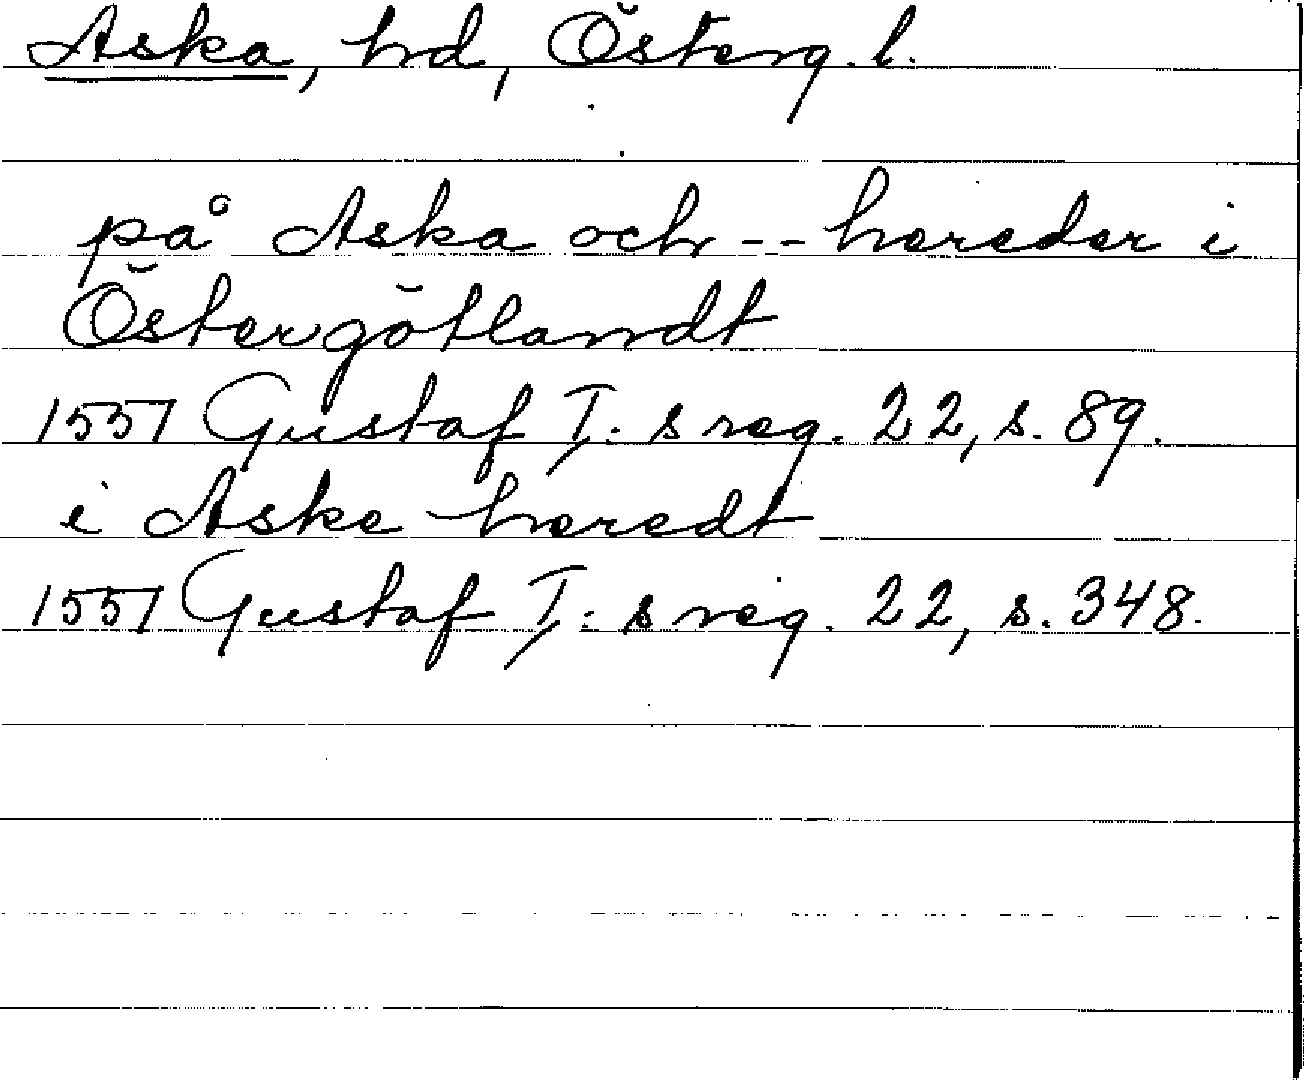 Aska, hd, Österg. l.
på Aska och -- hereder i
Östergötlandt
1551 Gustaf I: s reg. 22, s. 89.
i Aske heredt
1551 Gustaf I: s reg. 22, s. 348.